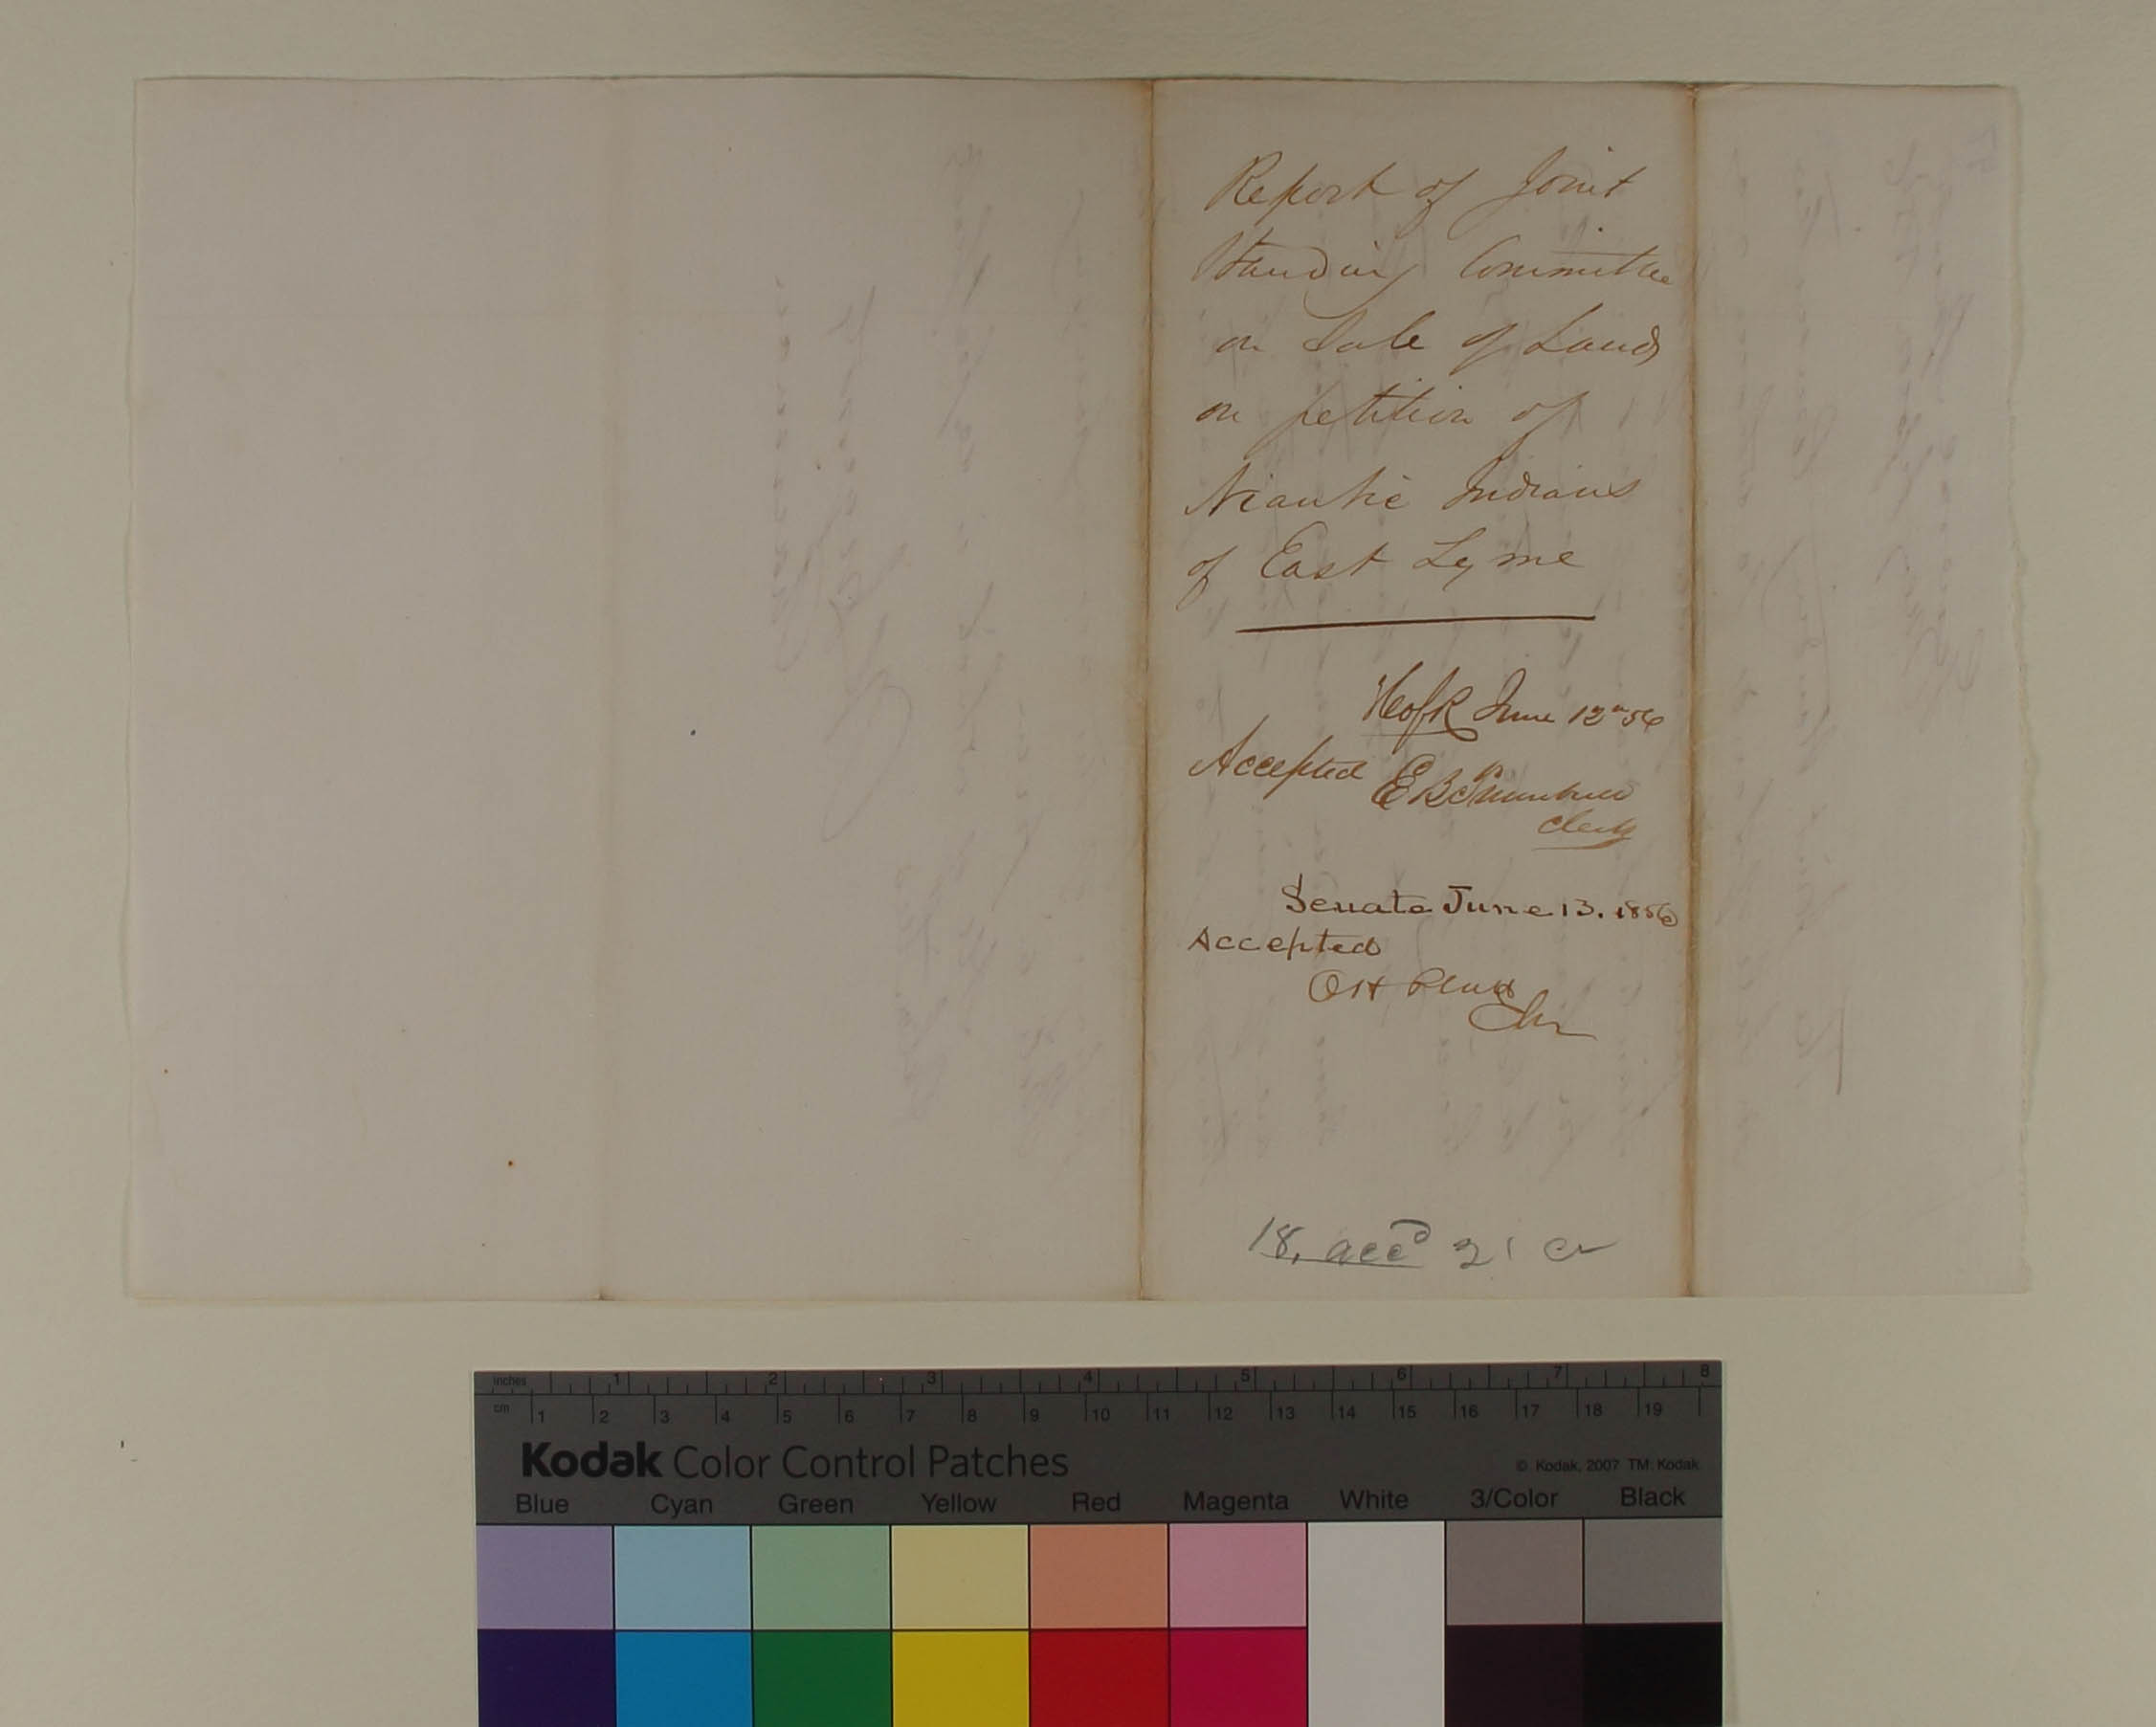 Report of Joint
Standing Committee
on Sale of Lands
on petition of
Niantic Indians
of East Lyme
HofR June 12" 56
Accepted E B Trumbull
Clerk
Senate June 13. 1856
Accepted
O H Platt
Clk
18, accd 21 cr
inches 1 2 3 4 5 6 7 8
cm 1 2 3 4 5 6 7 8 9 10 11 12 13 14 15 16 17 18 19
Kodak Color Control Patches
© Kodak, 2007 TM: Kodak
Blue Cyan Green Yellow Red Magenta White 3/Color Black